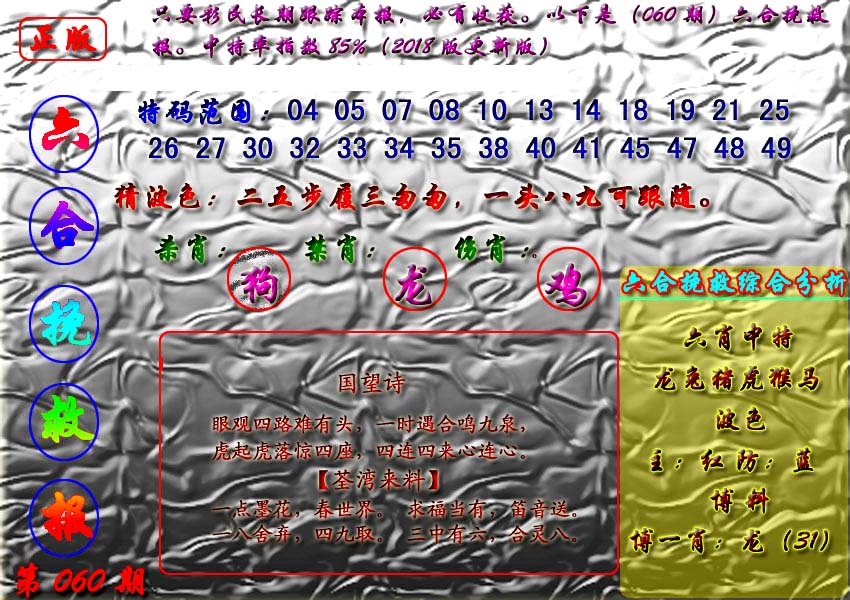 正版
只要彩民长期跟踪本报，必有收获。以下是（060期）六合挽救
报。中特率指数85%（2018版更新版）
六合挽救报
第060期
特码范围：04 05 07 08 10 13 14 18 19 21 25
26 27 30 32 33 34 35 38 40 41 45 47 48 49
猜波色：二五步履三匆匆，一头八九可跟随。
杀肖：狗 禁肖：龙 伤肖：鸡。
国望诗
眼观四路难有头，一时遇合鸣九泉，
虎起虎落惊四座，四连四来心连心。
【荃湾来料】
一点墨花，春世界。 求福当有，笛音送。
一八舍弃，四九取。 三中有六，合灵八。
六合挽救综合分析
六肖中特
龙兔猪虎猴马
波色
主：红防：蓝
博料
博一肖：龙（31）